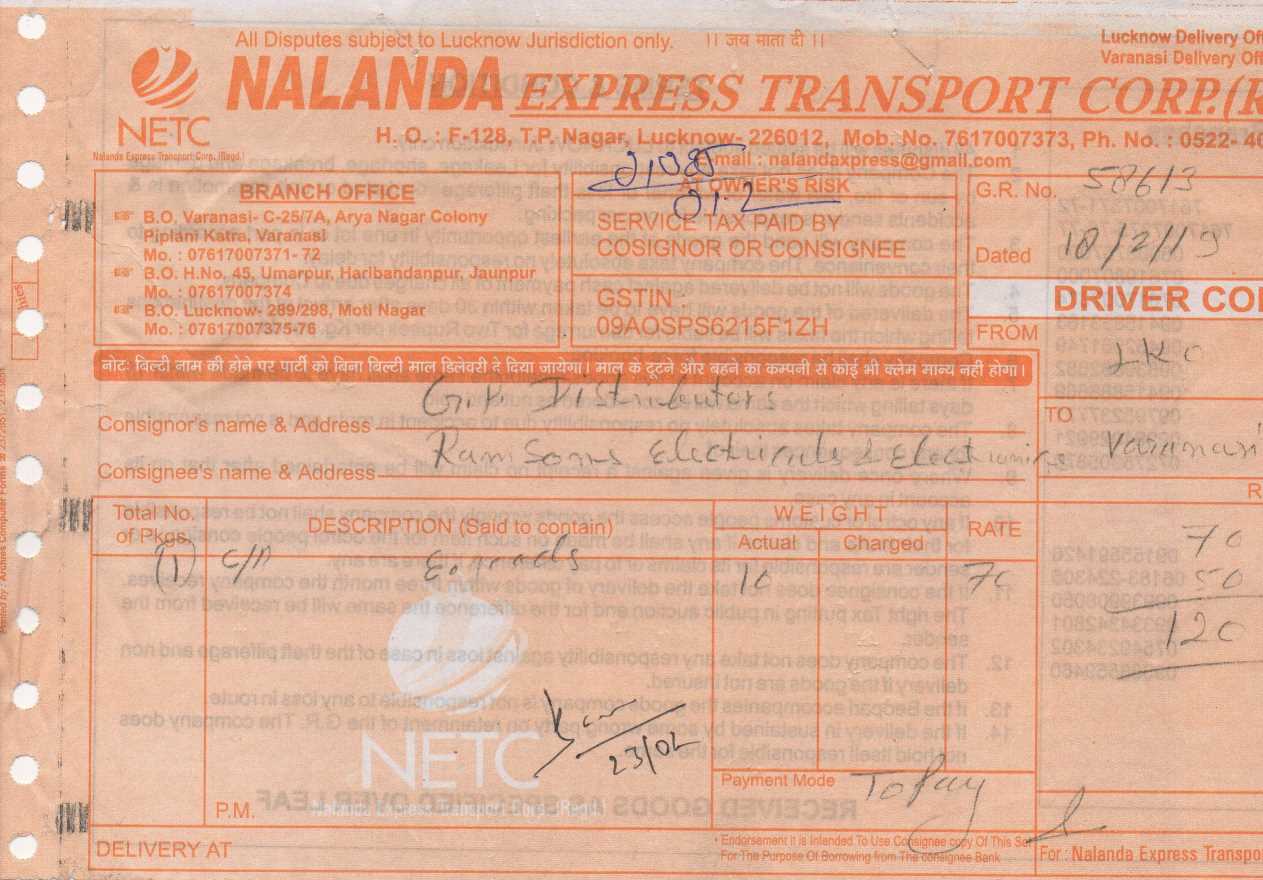 All Disputes subject to Lucknow Jurisdiction only. || जय माता दी ||
Lucknow Delivery Off
Varanasi Delivery Off
NETC
Nalanda Express Transport Corp. (Regd.)
NALANDA EXPRESS TRANSPORT CORP.(R
H. O. : F-128, T.P. Nagar, Lucknow- 226012, Mob. No. 7617007373, Ph. No. : 0522- 40
E-mail : nalandaxpress@gmail.com
BRANCH OFFICE
B.O. Varanasi- C-25/7A, Arya Nagar Colony
Piplani Katra, Varanasi
Mo. : 07617007371- 72
B.O. H.No. 45, Umarpur, Haribandanpur, Jaunpur
Mo. : 07617007374
B.O. Lucknow- 289/298, Moti Nagar
Mo. : 07617007375-76
AT OWNER'S RISK
SERVICE TAX PAID BY
COSIGNOR OR CONSIGNEE
GSTIN -
09AOSPS6215F1ZH
G.R. No. 58613
Dated 18/2/19
DRIVER CO
FROM
LKO
नोट: बिल्टी नाम की होने पर पार्टी को बिना बिल्टी माल डिलेवरी दे दिया जायेगा। माल के टूटने और बहने का कम्पनी से कोई भी क्लेम मान्य नही होगा।
Consignor's name & Address G.K. Distributors
TO
Varanasi
Consignee's name & Address Ram Sons Electricals & Electronics
Total No.
of Pkgs.
DESCRIPTION (Said to contain)
WEIGHT
Actual Charged
RATE
R
1 C/n E. goods 10 70
70
50
120
23/02
NETC
Nalanda Express Transport Corp. (Regd.)
P.M.
Payment Mode To Pay
DELIVERY AT
• Endorsement it is Intended To Use Consignee copy Of This Set
For The Purpose Of Borrowing from The consignee Bank
For : Nalanda Express Transpo